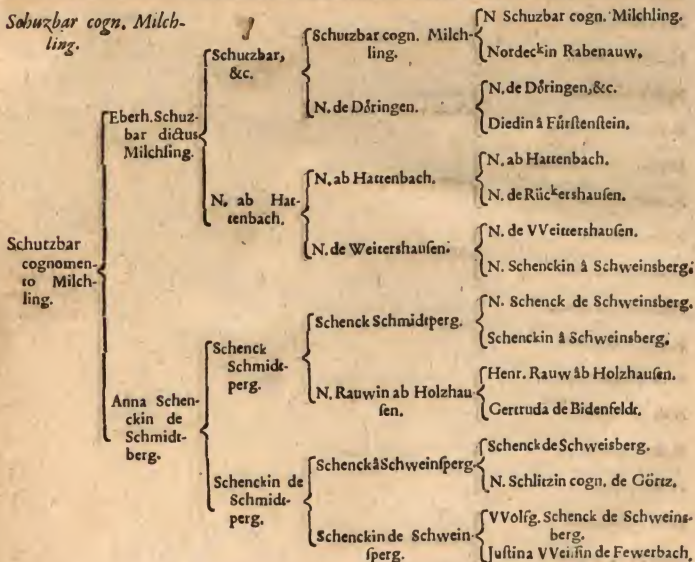 Schuzbar cogn. Milch-
ling.
Schutzbar
cognomen-
to Milch-
ling.
Eberh. Schuz-
bar dictus
Milchling.
Anna Schen-
ckin de
Schmidt-
berg.
Schutzbar,
&c.
N. ab Hat-
tenbach.
Schenck
Schmidt-
perg.
Schenckin de
Schmidt-
perg.
Schutzbar cogn. Milch-
ling.
N. de Döringen.
N. ab Hattenbach.
N. de Weitershausen.
Schenck Schmidtperg.
N. Rauwin ab Holzhau
sen.
Schenck â Schweinsperg.
Schenckin de Schwein-
sperg.
N Schuzbar cogn. Milchling.
Nordeckin Rabenauw.
N. de Döringen, &c.
Diedin â Fürstenstein.
N. ab Hattenbach.
N. de Rückershausen.
N. de VVeittershausen.
N. Schenckin â Schweinsberg.
N. Schenck de Schweinsberg.
Schenckin â Schweinsberg.
Henr. Rauw âb Holzhausen.
Gertruda de Bidenfeldt.
Schenck de Schweisberg.
N. Schlitzin cogn. de Görtz.
VVolfg. Schenck de Schweins-
berg.
Justina de Fewerbach.